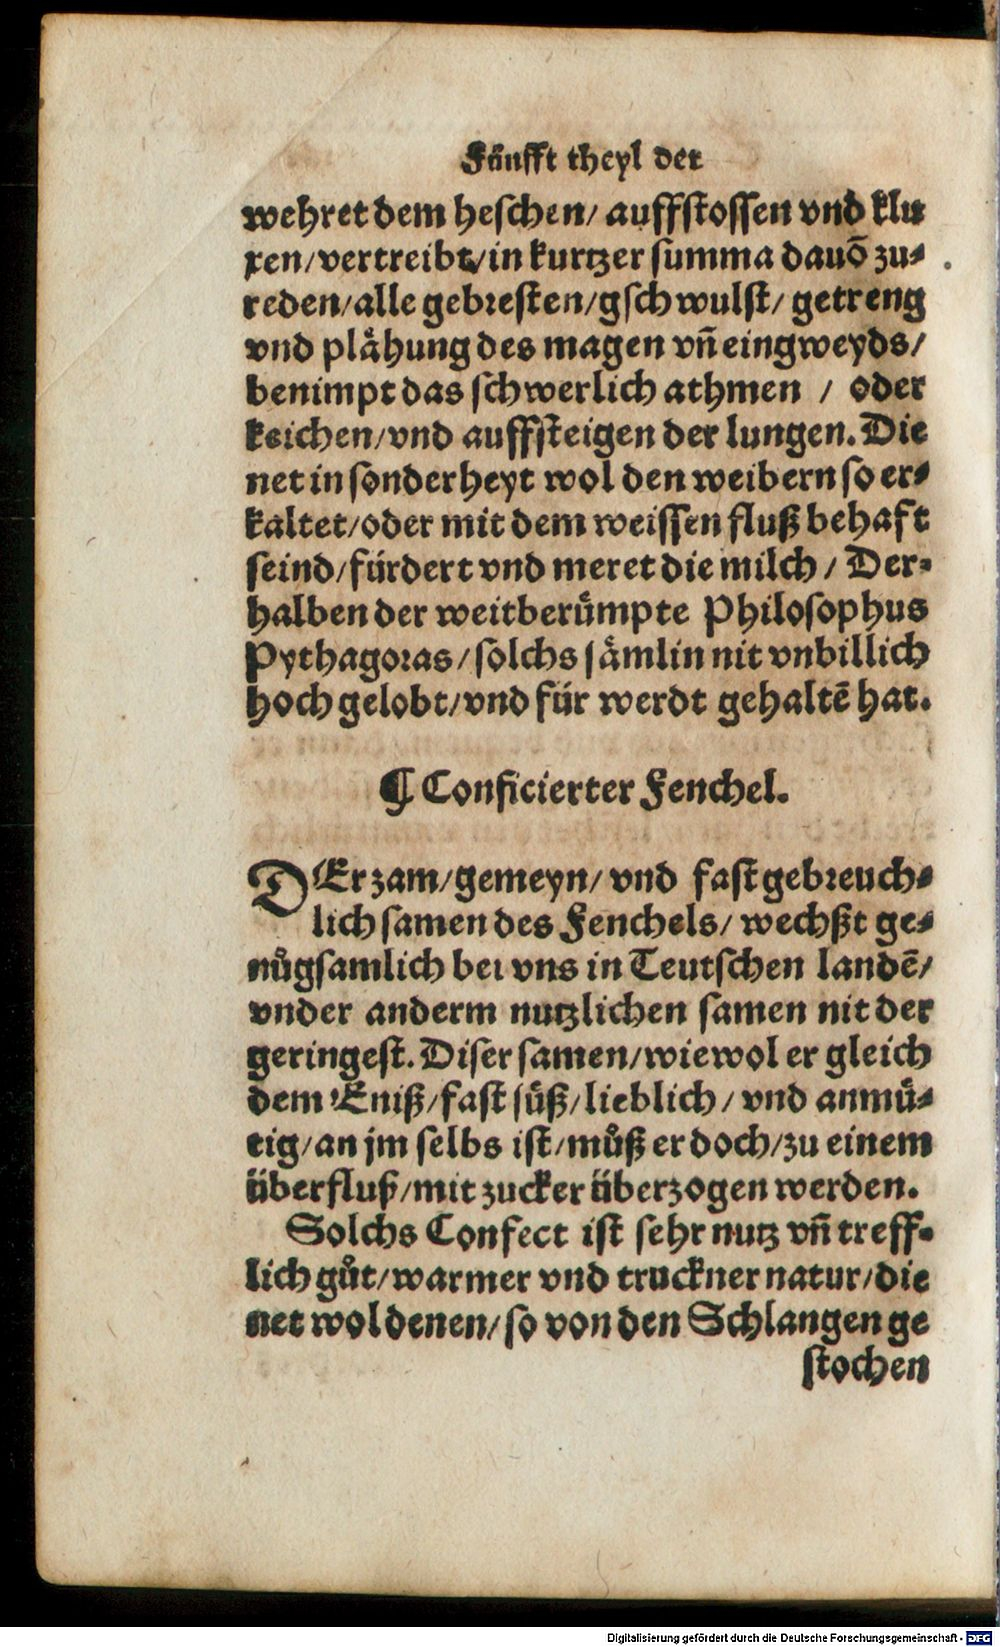 Fünfft theyl der
wehret dem heschen/ auffstossen vnd klu
xen/vertreibt/in kurtzer summa dauō zu-
reden/alle gebresten/gschwulst/ getreng
vnd plåhung des magen vñ eingweyds/
benimpt das schwerlich athmen / oder
keichen/vnd auffsteigen der lungen. Die
net in sonderheyt wol den weibern so er-
kaltet/oder mit dem weissen fluß behafft
seind/fürdert vnd meret die milch / Der-
halben der weitberůmpte Philosophus
Pythagoras/solchs såmlin nit vnbillich
hoch gelobt/vnd für werdt gehaltē hat.
¶ Conficierter Fenchel.
DEr zam/gemeyn/ vnd fast gebreuch-
lich samen des Fenchels/ wechßt ge-
nůgsamlich bei vns in Teutschen landē/
vnder anderm nutzlichen samen nit der
geringest. Diser samen/wiewol er gleich
dem Eniß/fast sůß/lieblich/ vnd anmů-
tig/an jm selbs ist/můß er doch/zu einem
überfluß/mit zucker überzogen werden.
Solchs Confect ist sehr nutz vñ treff-
lich gůt/warmer vnd truckner natur/die
net wol denen/so von den Schlangen ge
stochen
Digitalisierung gefördert durch die Deutsche Forschungsgemeinschaft - DFG